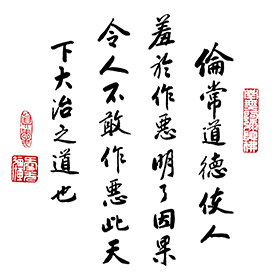 倫常道德使人
羞於作惡明了因果
令人不敢作惡此天
下大治之道也